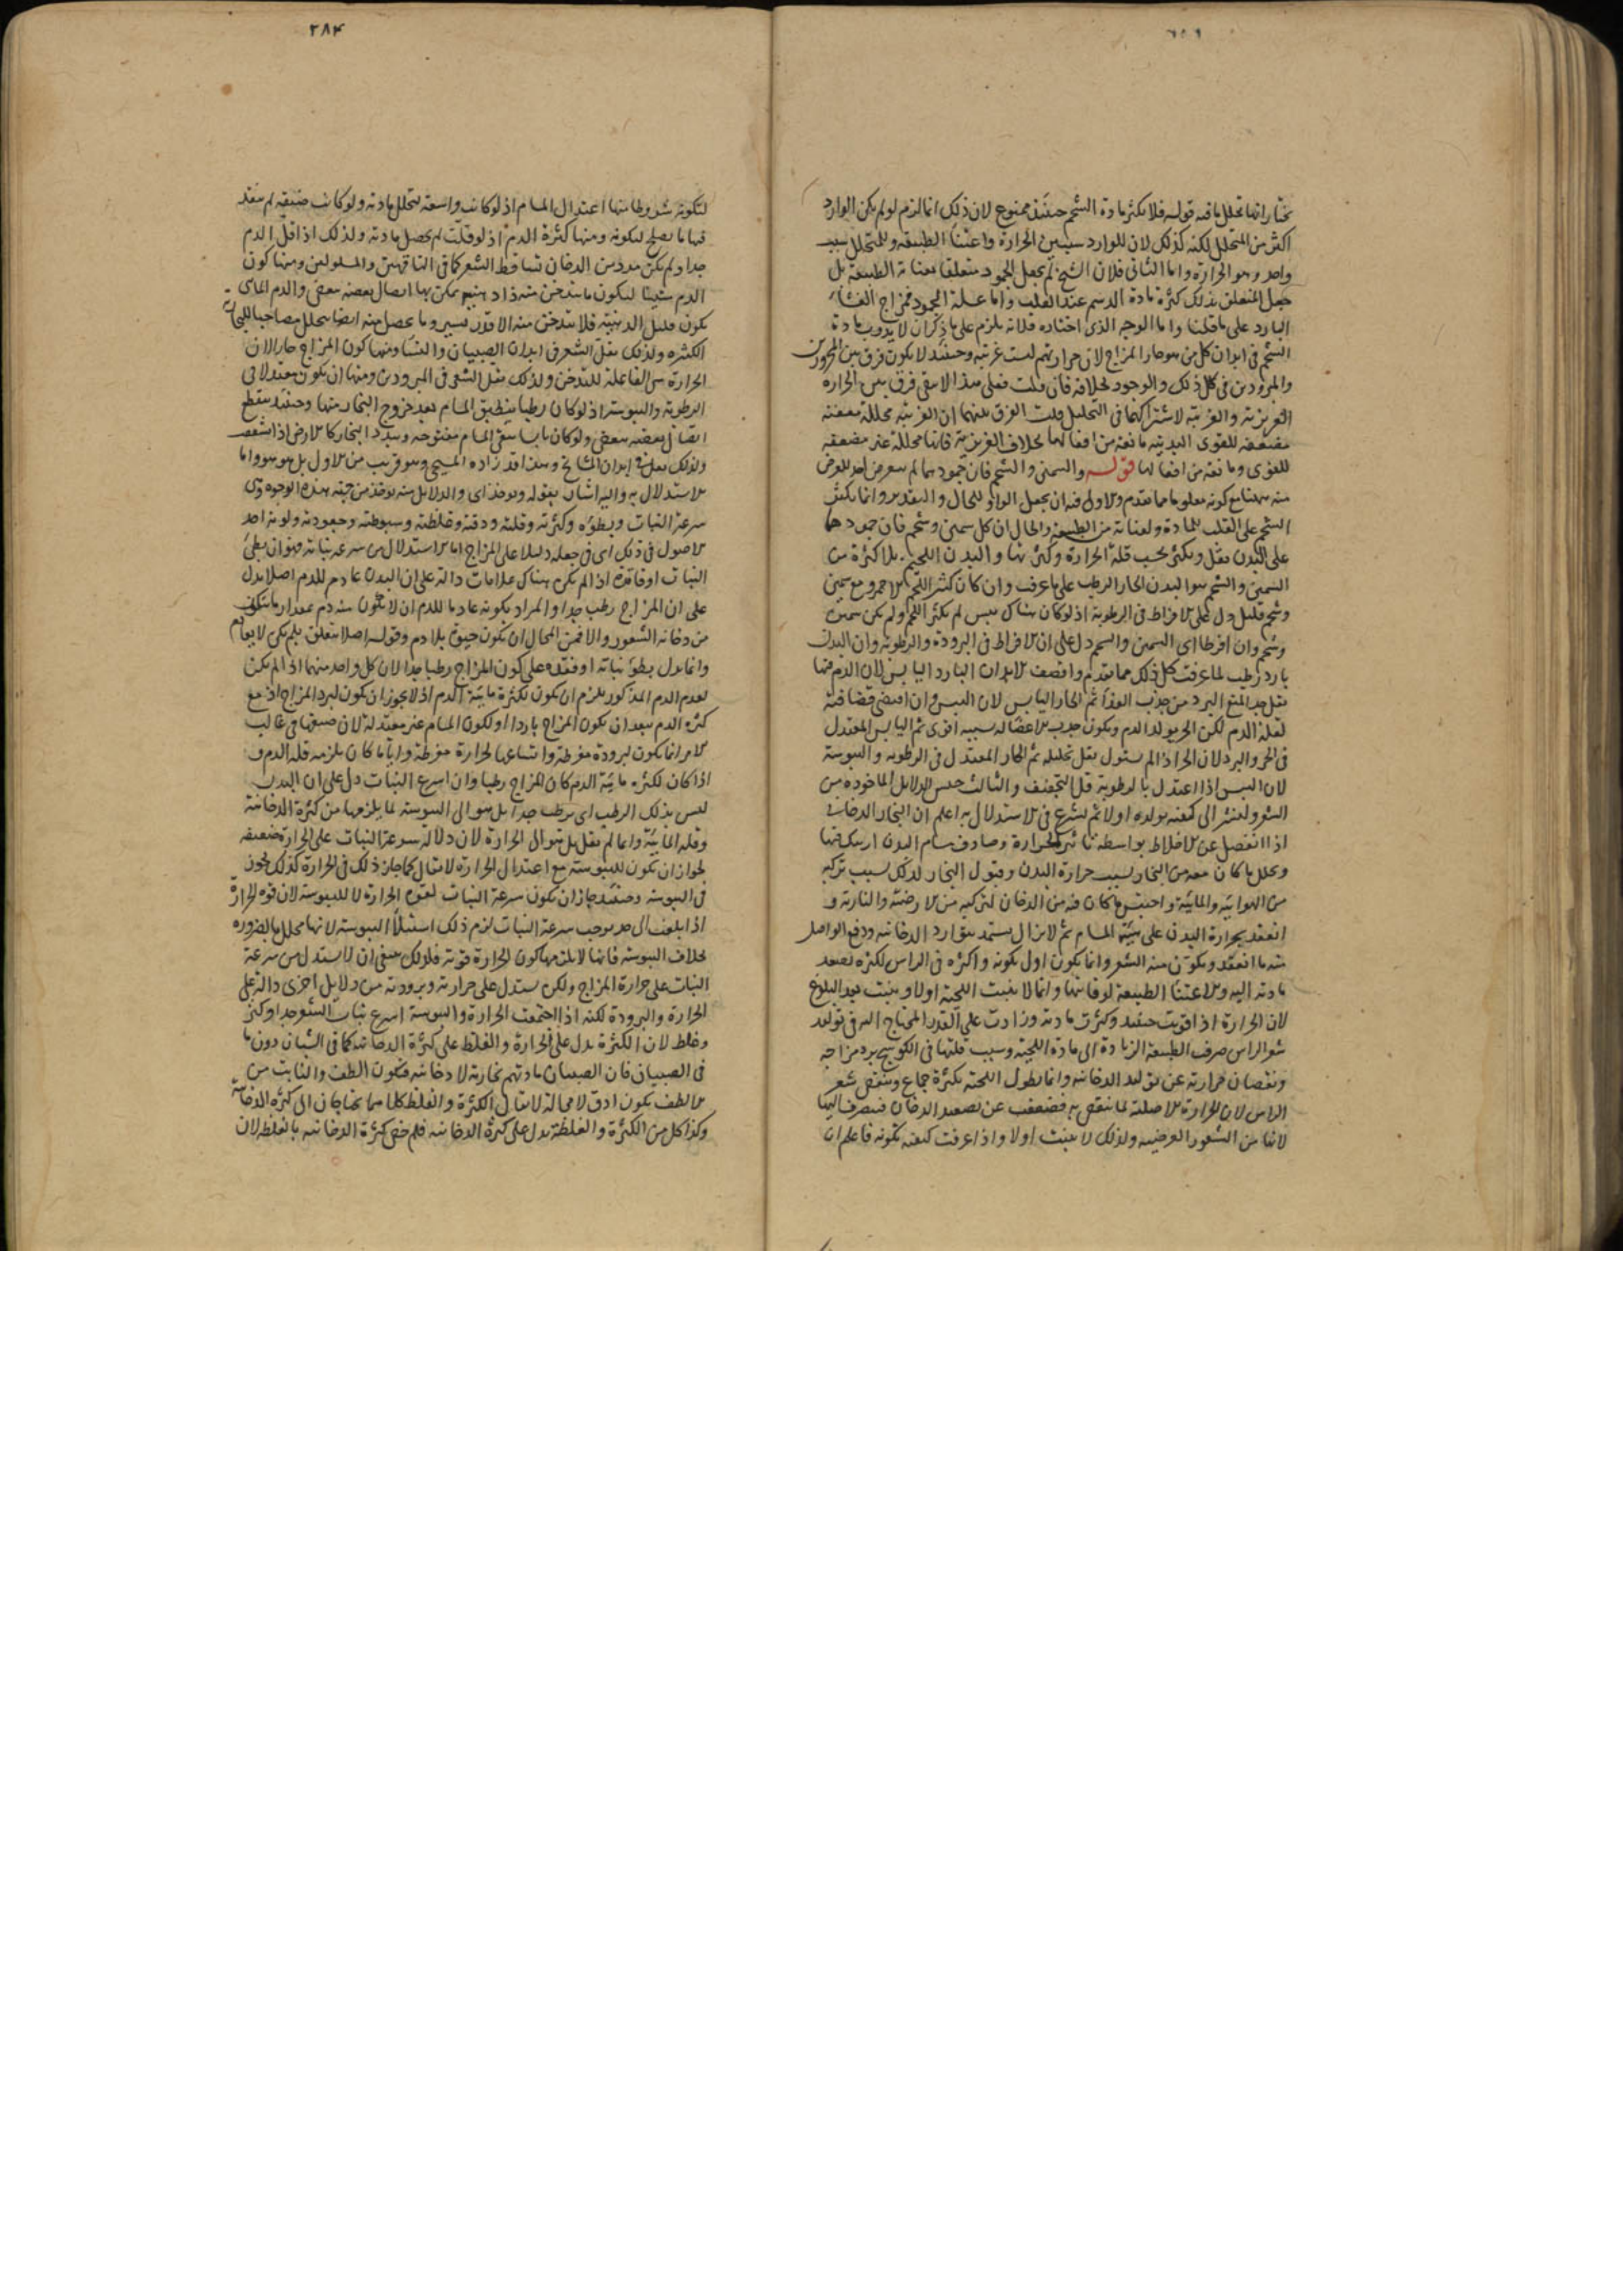 نختار انها تحلل ما فيه قوله فلا تكثر مادة الشحم حينئذ ممنوع لان ذلك انما لزم لو لم يكن الوارد
اكثر من المتحلل لكنه كذلك لان للوارد سببين الحرارة واعتناء الطبيعة وللمتحلل سبب
واحد وهو الحرارة واما الثاني فلان الشيخ لم يجعل الجمود متعلقا بعناية الطبيعة بل
جعل المتعلق بذلك كثرة مادة الدسم عند القلب واما علة الجمود فمزاج الغشاء
البارد على ما قلنا واما الوجه الذي اختاره فلانه يلزم على ما ذكر ان لا يذوب مادة
الشحم في ابدان كل من هو حار المزاج لان حرارتهم ليست غريبة وحينئذ لا يكون فرق بين المحرورين
والمبرودين في كل ذلك والوجود بخلافه فان قلت فعلى هذا لا يبقى فرق بين الحرارة
الغريزية والغريبة لاشتراكهما في التحليل قلت الفرق بينهما ان الغريبة محللة معفنة
مضعفة للقوى البدنية مانعة من افعالها بخلاف الغريزية فانها محللة غير مضعفة
للقوى ومانعة من افعالها قوله والسمين والشحم فان جمودهما لم يتعرض احد للغرض
منه ههنا مع كونه معلوما مما تقدم والاولى فيه ان يجعل الواو للحال والتقدير وانما يكثر
الشحم على القلب للمادة ولعناية من الطبيعة والحال ان كل سمين وشحم فان جمودهما
على البدن يقل ويكثر بحسب قلة الحرارة وكثرتها والبدن اللحيم بلا كثرة من
السمين والشحم هو البدن الحار الرطب على ما عرفت وان كان كثير اللحم الاحمر ومع سمين
وشحم قليل دل على الافراط في الرطوبة اذ لو كان هناك يبس لم يكثر اللحم ولم يكن سمين
وشحم وان افرطا اي السمين والشحم دل على ان الافراط في البرودة والرطوبة وان البدن
بارد رطب لما عرفت كل ذلك مما تقدم واقصف الابدان البارد اليابس لان الدم فيها
يقل جدا لمنع البرد من جذب الغذاء ثم الحار اليابس لان اليبس وان اقتضى قضافته
لقلة الدم لكن الحر يولد الدم ويكون جذب الاعضاء له بسببه اقوى ثم اليابس المعتدل
في الحر والبرد لان الحر اذا لم يستول يقل تحليله ثم الحار المعتدل في الرطوبة واليبوسة
لان اليبس اذا اعتدل بالرطوبة قل التجفيف والثالث جنس الدلايل الماخوذة من
الشعر ولنشر الى كيفية تولده اولا ثم نشرع في الاستدلال به اعلم ان البخار الدخاني
اذا انفصل عن الاخلاط بواسطة تاثير الحرارة وصادف مسام البدن ارتبك فيها
وتحلل ما كان معه من البخار بسبب حرارة البدن وقبول البخار لذلك بسبب تركبه
من الهوائية والمائية واحتبس ما كان فيه من الدخان لتركبه من الارضية والنارية و
انعقد بحرارة البدن على هيئة المسام ثم لا يزال يستمد بتوارد الدخانية ودفع الواصل
منه ما انعقد ويكون منه الشعر وانما يكون اول تكونه واكثره في الراس لكثرة تصعد
مادته اليه والاعتناء الطبيعة لوقايتها وانما لا ينبت اللحية اولا وينبت بعد البلوغ
لان الحرارة اذا قويت حينئذ وكثرت مادته وزادت على القدر المحتاج اليه في توليد
شعر الراس صرف الطبيعة الزيادة الى مادة اللحية وسبب قلتها في الكوسج برد مزاجه
ونقصان حرارته عن توليد الدخانية وانما يطول اللحية بكثرة جماع وينقص شعر
الراس لان الحرارة الاصلية لما ينقص به فيضعف عن تصعيد الدخان فينصرف اليها
لانها من الشعور العرضية ولذلك لا ينبت اولا واذا عرفت كيفية تكونه فاعلم ان
٢٨۴
لتكونه شروطا منها اعتدال المسام اذ لو كانت واسعة لتحلل مادته ولو كانت ضيقة لم ينفذ
فيها ما يصلح لتكونه ومنها كثرة الدم اذ لو قلت لم يحصل مادته ولذلك اذا قل الدم
جدا ولم يكن مدد من الدخان تساقط الشعر كما في الناقهين والمسلولين ومنها كون
الدم متينا ليكون ما يتدخن منه ذا دهنية يمكن بها اتصال بعضه ببعض والدم المائي
يكون قليل الدهنية فلا يتدخن منه الا قدر يسير وما يحصل منه ايضا يتحلل بمصاحبة المائية
الكثيرة ولذلك يقل الشعر في ابدان الصبيان والنساء ومنها كون المزاج حارا لان
الحرارة هي الفاعلة للتدخن ولذلك يقل الشعر في المبرودين ومنها ان يكون معتدلا في
الرطوبة واليبوسة اذ لو كان رطبا ينطبق المسام بعد خروج البخار منها وحينئذ ينقطع
اتصال بعضه ببعض ولو كان يابسا يبقى المسام مفتوحة ويتبدد البخار كالارض اذا تشققت
ولذلك يقل في ابدان المشايخ وهذا قد زاده المسيحي وهو قريب من الاول بل هو هو واما
الاستدلال به واليه اشار بقوله ويوخذ اي والدلايل منه يوخذ من جهة هذه الوجوه وهي
سرعة النبات وبطؤه وكثرته وقلته ودقته وغلظته وسبوطته وجعودته ولونه احد
الاصول في ذلك اي في جعله دليلا على المزاج اما الاستدلال من سرعة نباته فهو ان بطئ
النبات او فاقده اذا لم يكن هناك علامات دالة على ان البدن عادم للدم اصلا يدل
على ان المزاج رطب جدا والمراد بكونه عادما للدم ان لا يكون منه دم بمقدار ما يتكون
من دخانه الشعور والا فمن المحال ان يكون حيوة بلا دم وقوله اصلا يتعلق بلم يكن لا بعادم
وانما يدل بطؤ نباته او فقده على كون المزاج رطبا جدا لان كل واحد منهما اذا لم يكن
لعدم الدم المذكور يلزم ان يكون لكثرة مائية الدم اذ لا يجوز ان يكون لبرد المزاج اذ مع
كثرة الدم يبعد ان يكون المزاج باردا او لكون المسام غير معتدلة لان ضيقها في غالب
الامر انما يكون لبرودة مفرطة واتساعها لحرارة مفرطة وايا ما كان يلزمه قلة الدم و
اذا كان لكثرة مائية الدم كان المزاج رطبا وان اسرع النبات دل على ان البدن
ليس بذلك الرطب اي برطب جدا بل هو الى اليبوسة لما يلزمها من كثرة الدخانية
وقلة المائية وانما لم يقل بل هو الى الحرارة لان دلالة سرعة النبات على الحرارة ضعيفة
لجواز ان تكون لليبوسة مع اعتدال الحرارة لا يقال كما جاز ذلك في الحرارة كذلك يجوز
في اليبوسة وحينئذ جاز ان يكون سرعة النبات لقوة الحرارة لا لليبوسة لان قوة الحرارة
اذا بلغت الى حد يوجب سرعة النبات لزم ذلك استيلاء اليبوسة لانها تحلل بالضرورة
بخلاف اليبوسة فانها لا يلزمها كون الحرارة قوية فلذلك ينبغي ان لا يستدل من سرعة
النبات على حرارة المزاج ولكن يستدل على حرارته وبرودته من دلايل اخرى دالة على
الحرارة والبرودة لكنه اذا اجتمعت الحرارة واليبوسة اسرع نبات الشعر جدا وكثر
وغلظ لان الكثرة يدل على الحرارة والغلظ على كثرة الدخانية كما في الشبان دون ما
في الصبيان فان الصبيان مادتهم بخارية لا دخانية فيكون الطف والنابت من
الالطف يكون ادق لا محالة لا يقال الكثرة والغلظ كلاهما يحتاجان الى كثرة الدخانية
وكذا كل من الكثرة والغلظة يدل على كثرة الدخانية فلم خص كثرة الدخانية بالغلظ لان